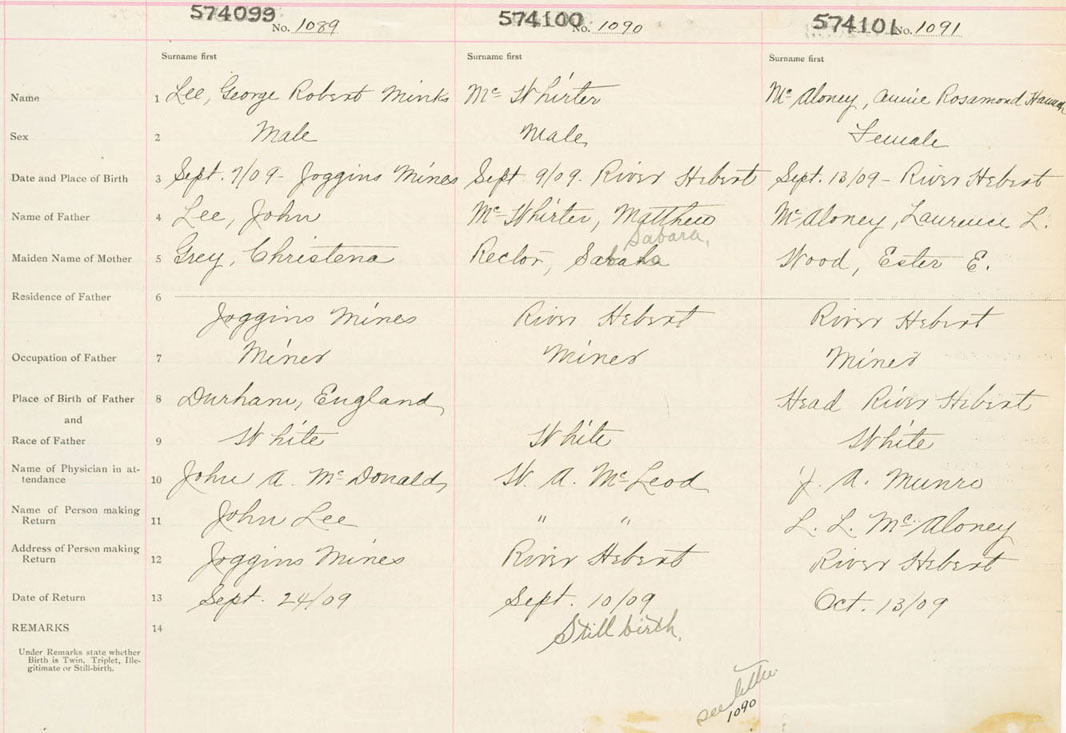 574099 574100 574101
No. 1089 No. 1090 No. 1091
Surname first Surname first Surname first
Name 1 Lee, George Robert Minks Mc Whirter Mc Aloney, Annie Rosamond
Sex 2 Male Male Female
Date and Place of Birth 3 Sept. 7/09 - Joggins Mines Sept 9/09. River Hebert Sept. 13/09 - River Hebert
Name of Father 4 Lee, John Mc Whirter, Matthew Mc Aloney, Laurence L.
Sabara,
Maiden Name of Mother 5 Grey, Christena Rector, Wood, Ester E.
Residence of Father 6
Joggins Mines River Hebert River Hebert
Occupation of Father 7 Miner Miner Miner
Place of Birth of Father 8 Durham, England Head River Hebert
and
Race of Father 9 White White White
Name of Physician in at-
tendance 10 John A. Mc Donald, W. A. Mc Leod J. A. Munro
Name of Person making
Return 11 John Lee " " L. L. Mc Aloney
Address of Person making
Return 12 Joggins Mines River Hebert River Hebert
Date of Return 13 Sept. 24/09 Sept. 10/09 Oct. 13/09
REMARKS 14 Still birth.
Under Remarks state whether
Birth is Twin, Triplet, Ille-
gitimate or Still-birth.
see letter
1090